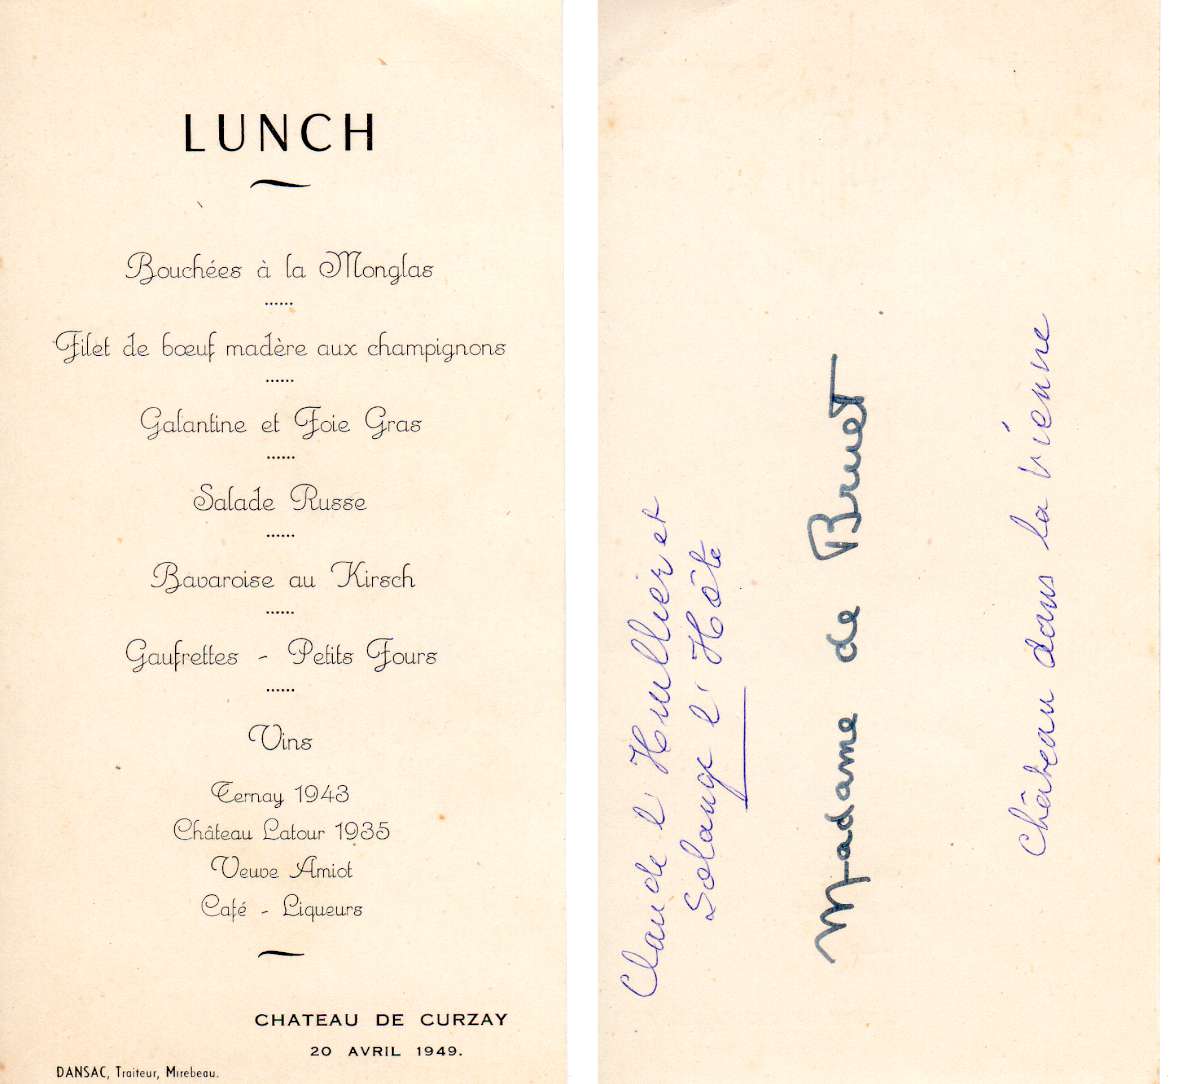 LUNCH
Bouchées à la Monglas
Filet de bœuf madère aux champignons
Galantine et Foie Gras
Salade Russe
Bavaroise au Kirsch
Gaufrettes - Petits Fours
Vins
Ternay 1943
Château Latour 1935
Veuve Amiot
Café - Liqueurs
CHATEAU DE CURZAY
20 AVRIL 1949.
DANSAC, Traiteur, Mirebeau.
Claude l'Huillier et
Solange l'Hôte
Madame de Bruet
Château dans la Vienne